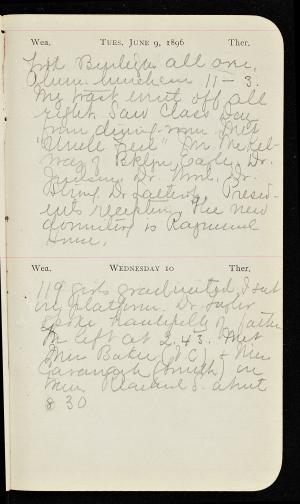 Wea. TUES. JUNE 9, 1896 Ther.
all over.
Alum. luncheon 11-3.
My toast went off all
right. Saw Class Day
from dining-room. Met
"Uncle Fred" Mr.
of Bklyn. Eagle, Dr.
Dr. Dr.
Strong, Dr. Presid-
ents reception. The new
dormitory is Raymond
House.
Wea. WEDNESDAY 10 Ther.
119 girls graduated, I sat
on platform. Dr. Taylor
spoke beautifully of father
M left at 2.43. Met
Miss Baker (J. C.) & Miss
Cavanaugh (Smith) in
Miss about
8 30